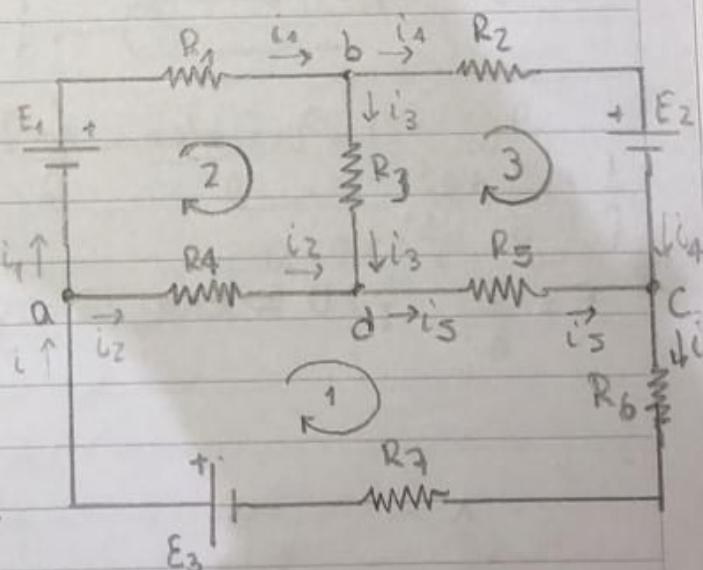 R1 i1 b i4 R2
E1 + + E2
i3
2 R3 3
i1 R4 i2 i3 R5 i4
a i2 d i5 i5 c
i i
1 R6
+ R7
E3